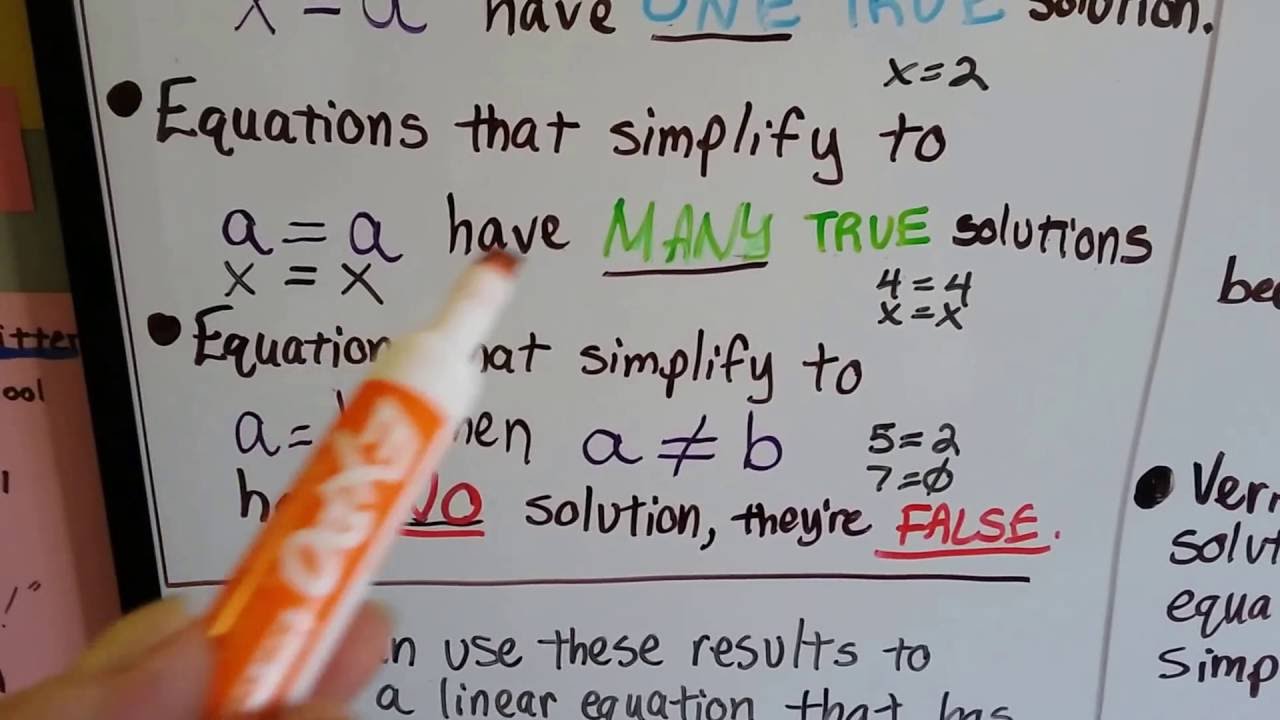 x = a have ONE TRUE solution.
x=2
• Equations that simplify to
a = a have MANY TRUE solutions
x = x
4 = 4
x = x
• Equation that simplify to
a= a ≠ b
5=2
7=0
NO solution, they're FALSE.
use these results to
a linear equation that has
bec
• Veri
solut
equa
simp
itter
ool
!"
Quartet